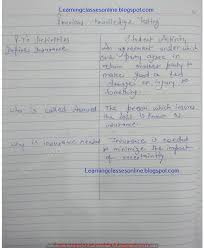 Learningclassesonline.blogspot.com
Previous Knowledge Testing
P.T's Activities Student Activity
Define Insurance. An agreement under which
one party agree in
return another party to
make good a
damages or injury to
something.
who is called Insured The person which insures
the is known as
insurance.
why is insurance needed Insurance is needed
to minimize the impact
of uncertainty.
Learningclassesonline.blogspot.com